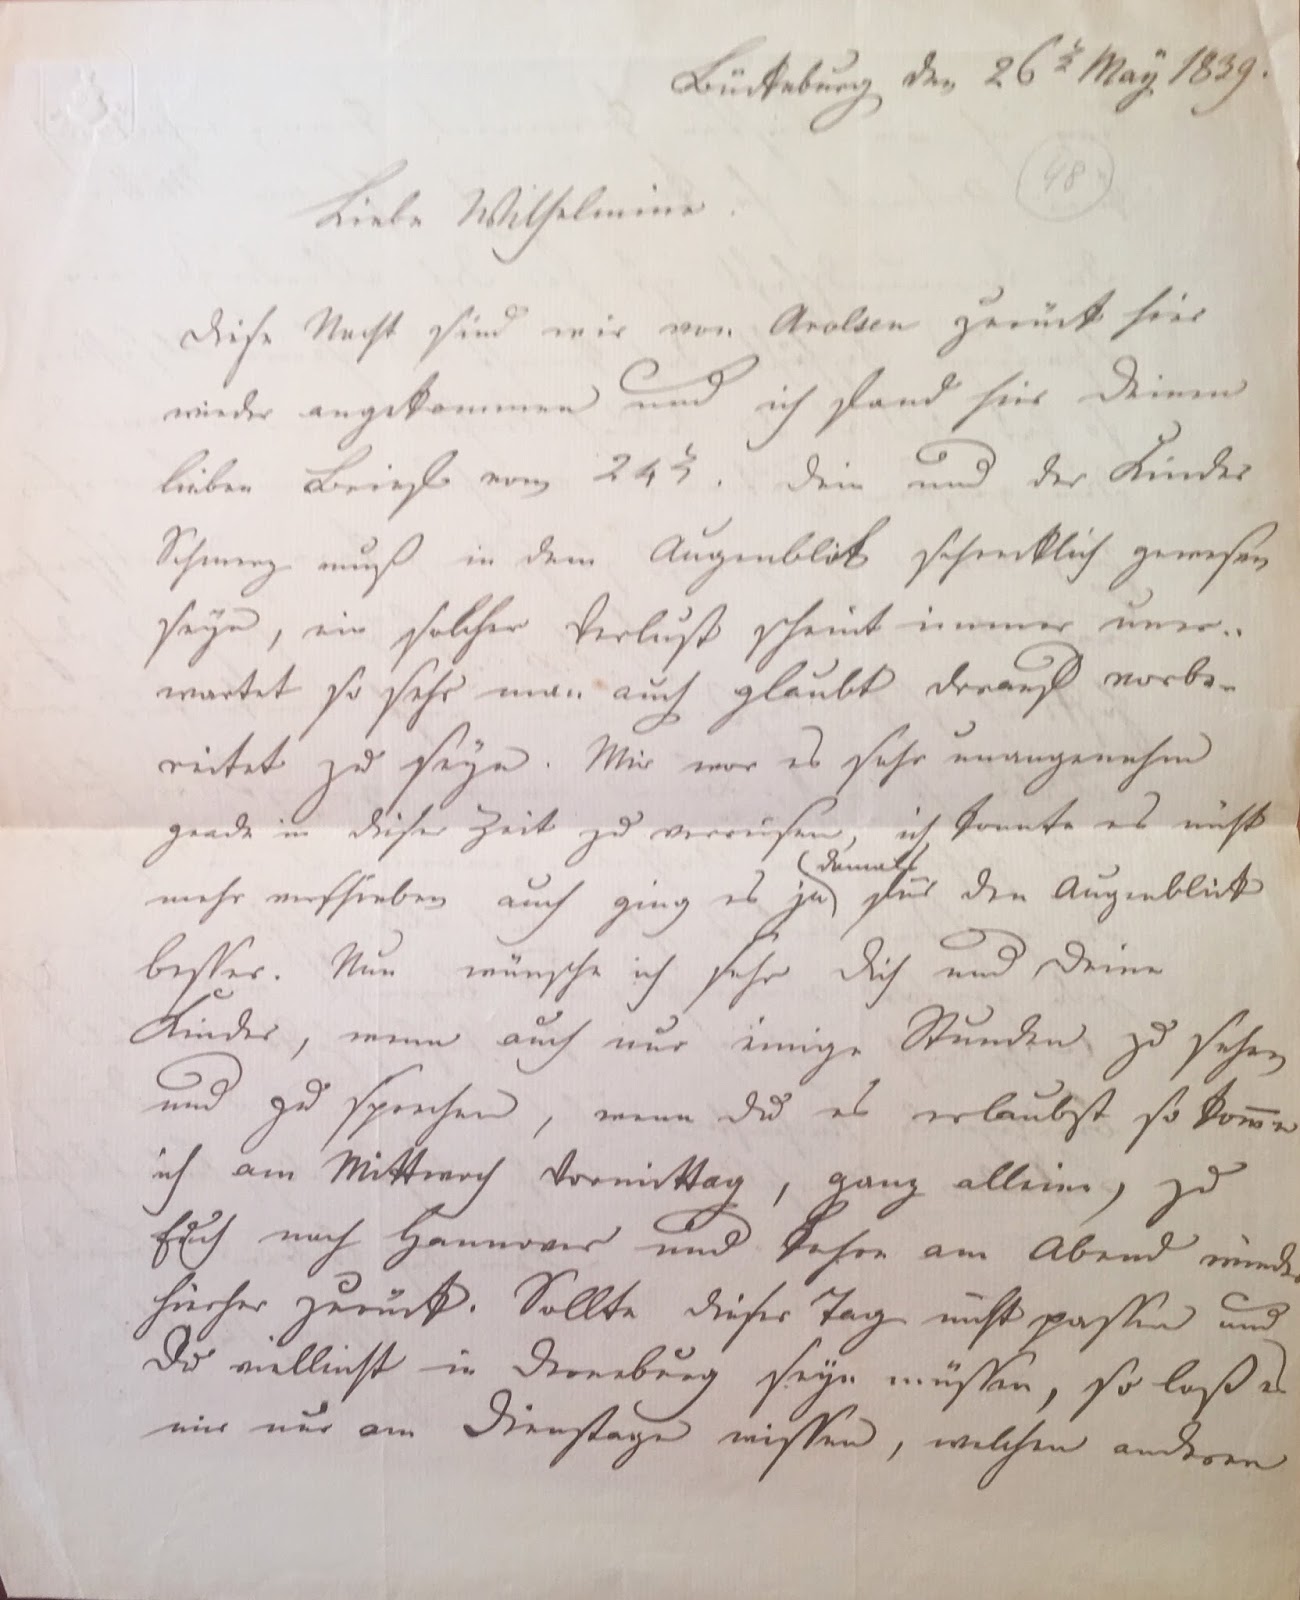 Bückeburg den 26t May 1839.
48
Liebe Wilhelmine.
Diese Nacht sind wir von Arolsen zurück hier
wieder angekommen und ich fand hier Deinen
lieben Brief vom 24t. Dein und der Kinder
Schmerz muß in dem Augenblick schrecklich gewesen
seyn, ein solcher Verlust scheint immer uner-
wartet so sehr man auch glaubt darauf vorbe-
reitet zu seyn. Mir war es sehr unangenehm
grade in dieser Zeit zu verreisen, ich konnte es nicht
damals
mehr verschieben auch ging es ja für den Augenblick
besser. Nun wünsche ich sehr Dich und Deine
Kinder, wenn auch nur einige Stunden zu sehen
und zu sprechen, wenn du es erlaubst so kom̅e
ich am Mittwoch Vormittag, ganz allein, zu
Euch nach Hannover und kehre am Abend wieder
hierher zurück. Sollte dieser Tag nicht passen und
Du vielleicht in Derneburg seyn müssen, so laß es
mir nur am Dienstage wissen, welchen anderen